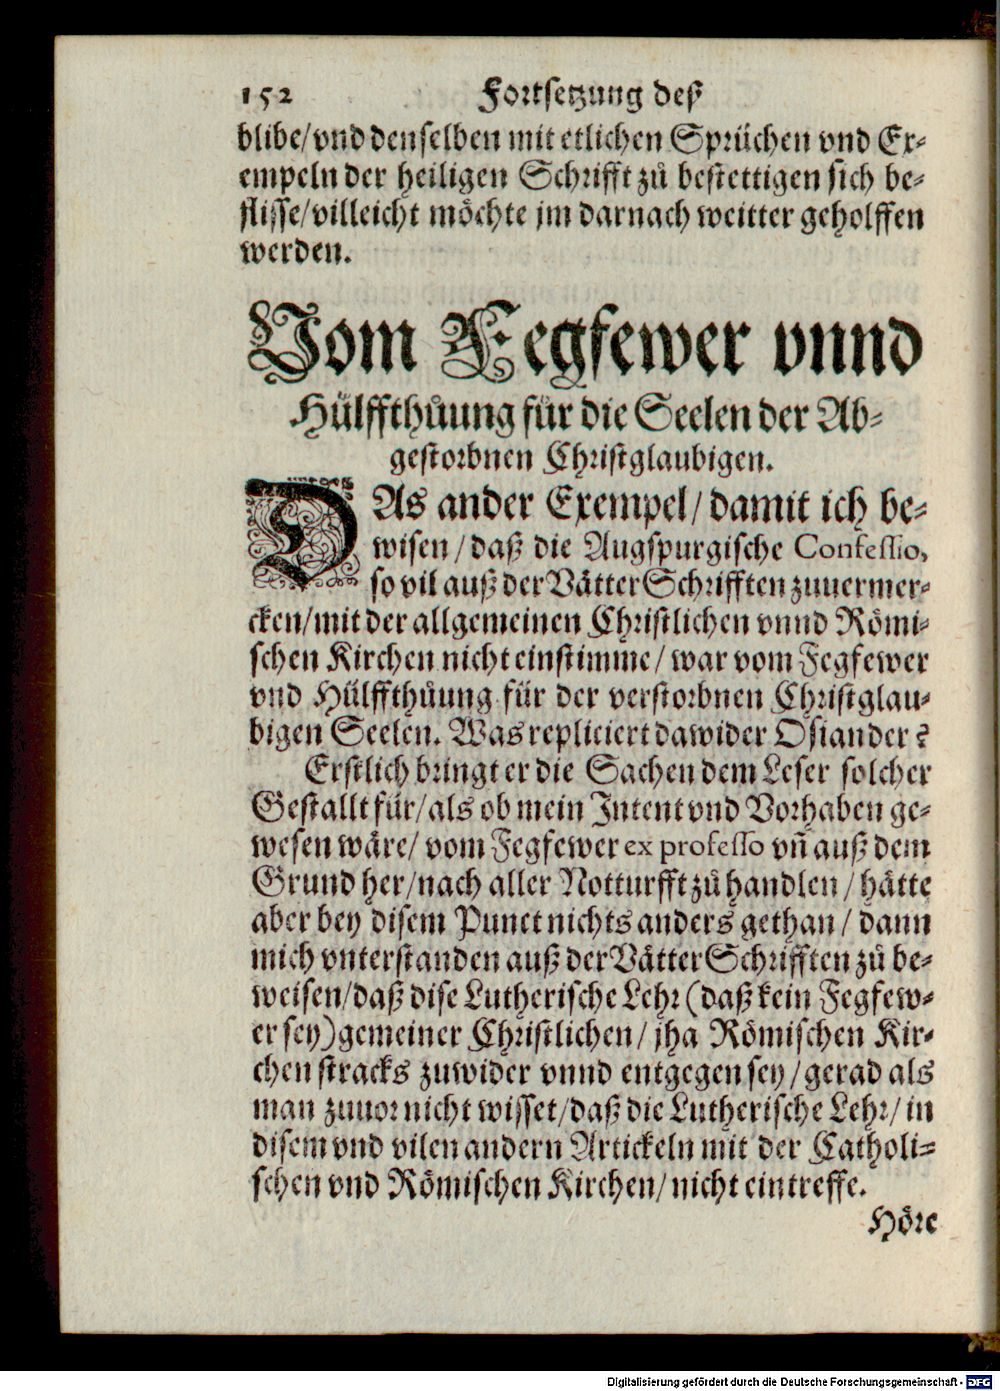 152 Fortsetzung deß
blibe/vnd denselben mit etlichen Sprüchen vnd Ex-
empeln der heiligen Schrifft zů bestettigen sich be-
flisse/villeicht möchte jm darnach weitter geholffen
werden.
Vom Fegfewer vnnd
Hülffthůung für die Seelen der Ab-
gestorbnen Christglaubigen.
DAs ander Exempel/damit ich be-
wisen/daß die Augspurgische Confessio,
so vil auß der Vätter Schrifften zuuermer-
cken/mit der allgemeinen Christlichen vnnd Römi-
schen Kirchen nicht einstimme/war vom Fegfewer
vnd Hülffthůung für der verstorbnen Christglau-
bigen Seelen. Was repliciert dawider Osiander?
Erstlich bringt er die Sachen dem Leser solcher
Gestallt für/als ob mein Intent vnd Vorhaben ge-
wesen wäre/vom Fegfewer ex professo vñ auß dem
Grund her/nach aller Notturfft zů handlen/hätte
aber bey disem Punct nichts anders gethan/dann
mich vnterstanden auß der Vätter Schrifften zů be-
weisen/daß dise Lutherische Lehr (daß kein Fegfew-
er sey) gemeiner Christlichen/jha Römischen Kir-
chen stracks zuwider vnnd entgegen sey/gerad als
man zuuor nicht wisset/daß die Lutherische Lehr/in
disem vnd vilen andern Artickeln mit der Catholi-
schen vnd Römischen Kirchen/nicht eintreffe.
Höre
Digitalisierung gefördert durch die Deutsche Forschungsgemeinschaft - DFG